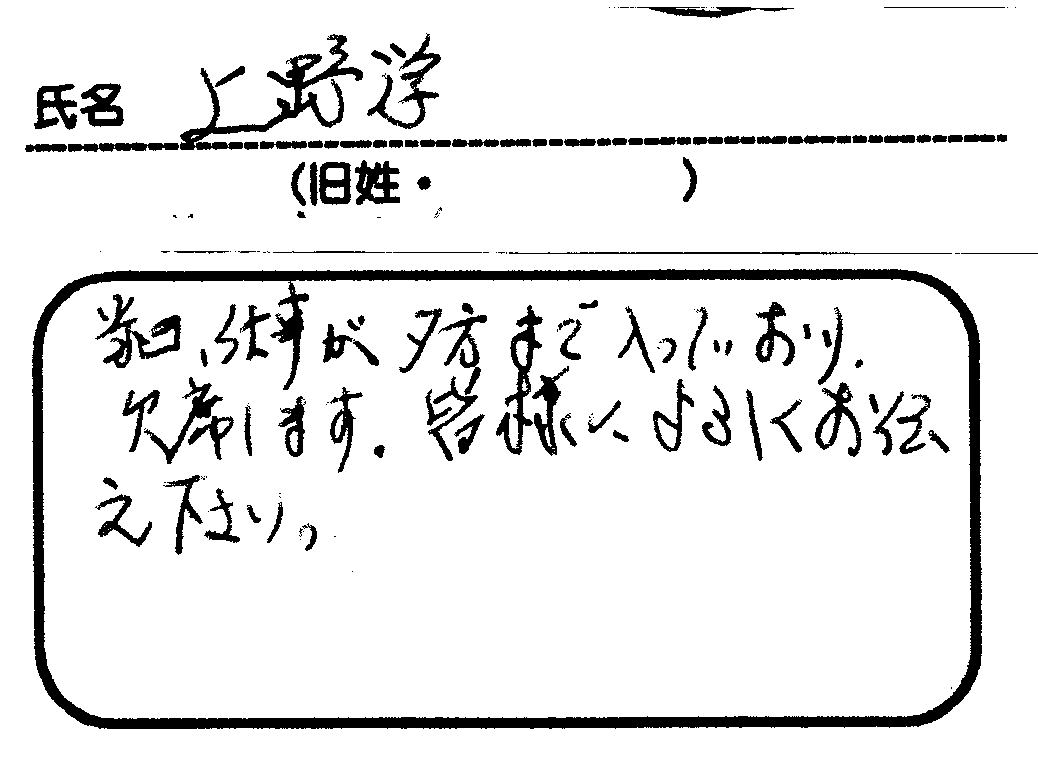 氏名 上野学
(旧姓・ )
当日、仕事が夕方まで入っており、
欠席します。皆様へよろしくお伝
え下さい。